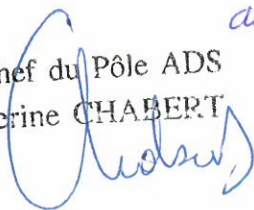 hef du Pôle ADS
erine CHABERT